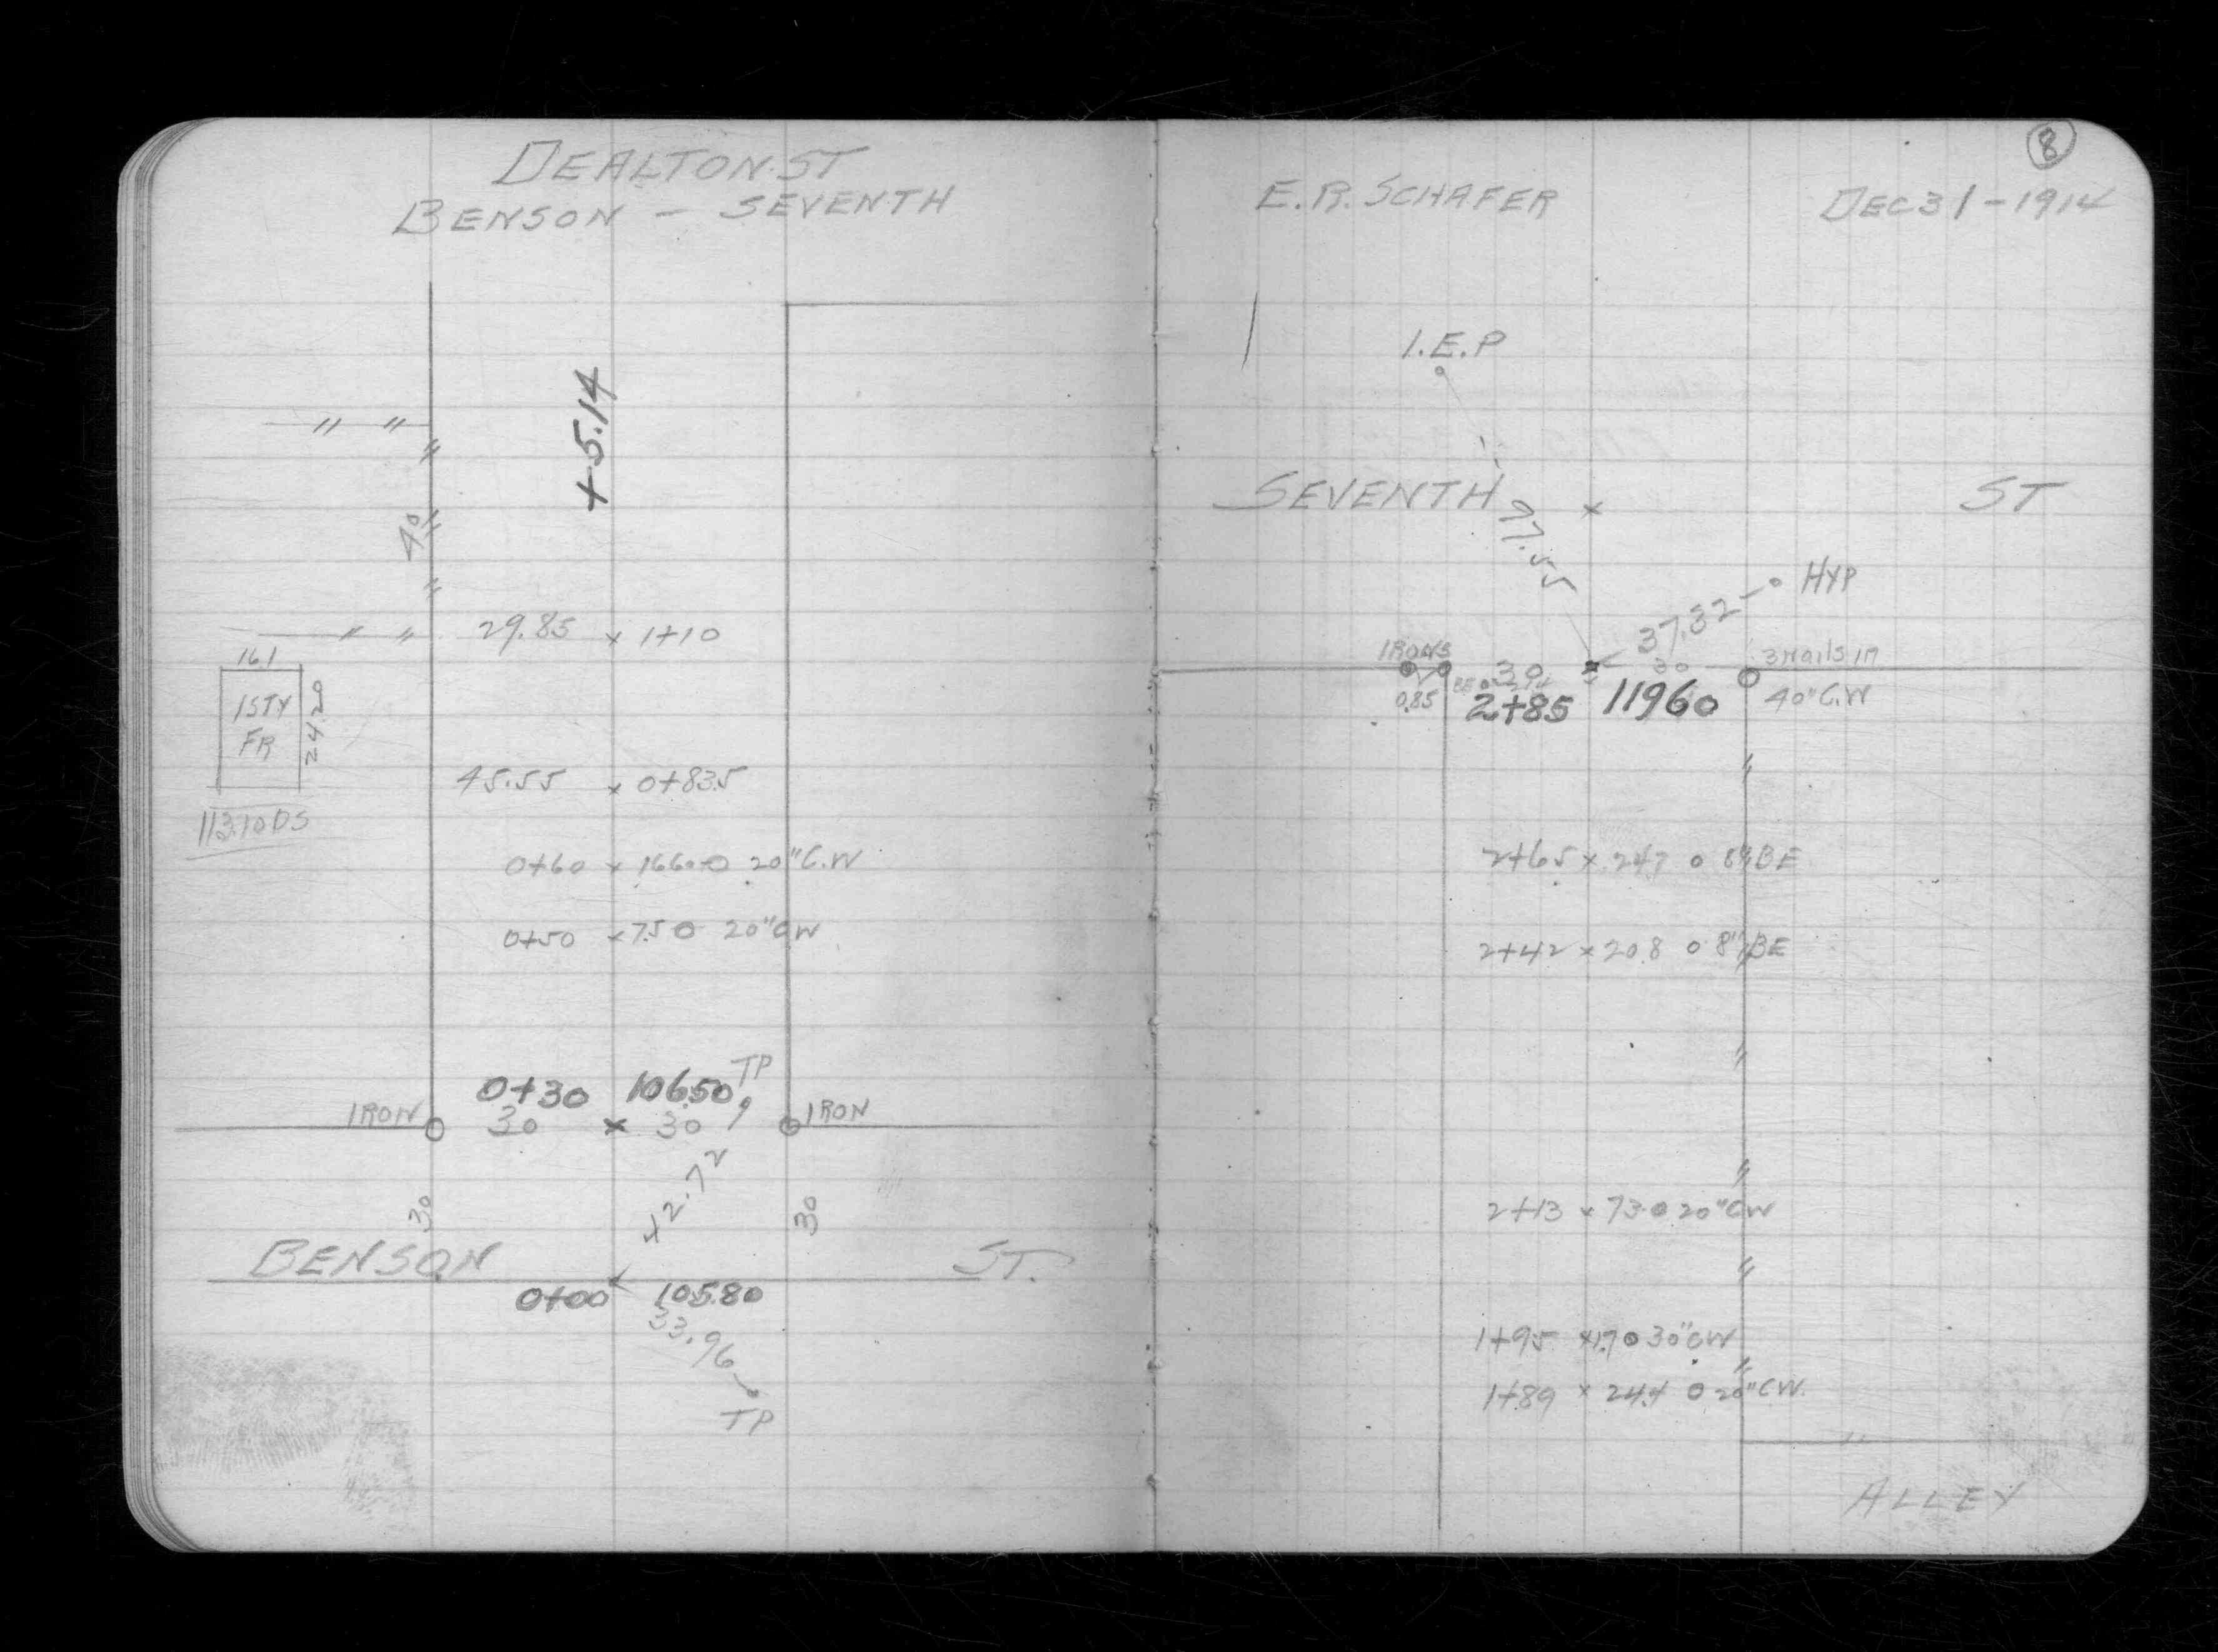 DEALTON. ST
BENSON - SEVENTH
+5.14
" "
"
40
"
"
" " 29.85 x 1+10
16.1
1 STY
FR
24.2
45.55 x 0+83.5
113.10 DS
0+60 x 16.6 o 20" C.W
0+50 x 7.5 o 20" C W
TP
0+30 106.50
IRON 30 x 30 IRON
42.72
30 30
BENSON ST.
0+00 105.80
33.96
TP
8
E.R. SCHAFER DEC 31 - 1914
I.E.P
SEVENTH x ST
97.55
HYP
37.32
IRONS 30 30 3 Nails in
0.85 2+85 119.60 40" C.W
"
2+65 x 24.7 o 8" BE
2+42 x 20.8 o 8" BE
"
"
2+13 x 7.3 o 20" C W
"
1+95 x 17 o 30" C W
"
1+89 x 24.4 o 20" C W.
"
ALLEY